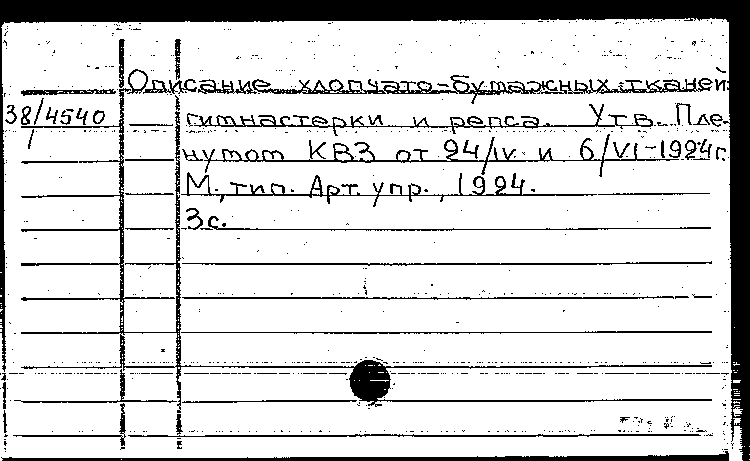 Описание хлопчато-бумажных тканей
38/4540 гимнастерки и репса. Утв. Пле-
нумом КВЗ от 24/IV. и 6/VI-1924г.
М., тип. Арт. упр., 1924.
3с.